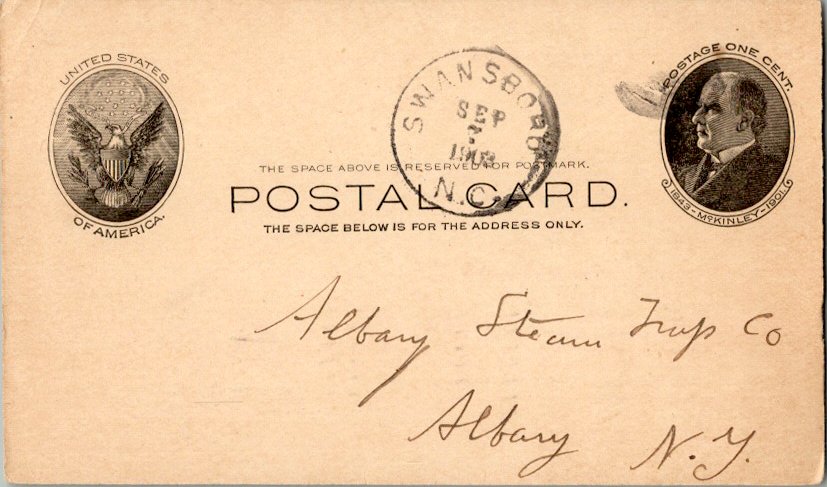 UNITED STATES
OF AMERICA.
SWANSBORO
SEP
N.C.
POSTAGE ONE CENT.
1843-McKINLEY-1901
THE SPACE ABOVE IS RESERVED FOR POSTMARK.
POSTAL CARD.
THE SPACE BELOW IS FOR THE ADDRESS ONLY.
Albany Steam Trap Co
Albany N.Y.